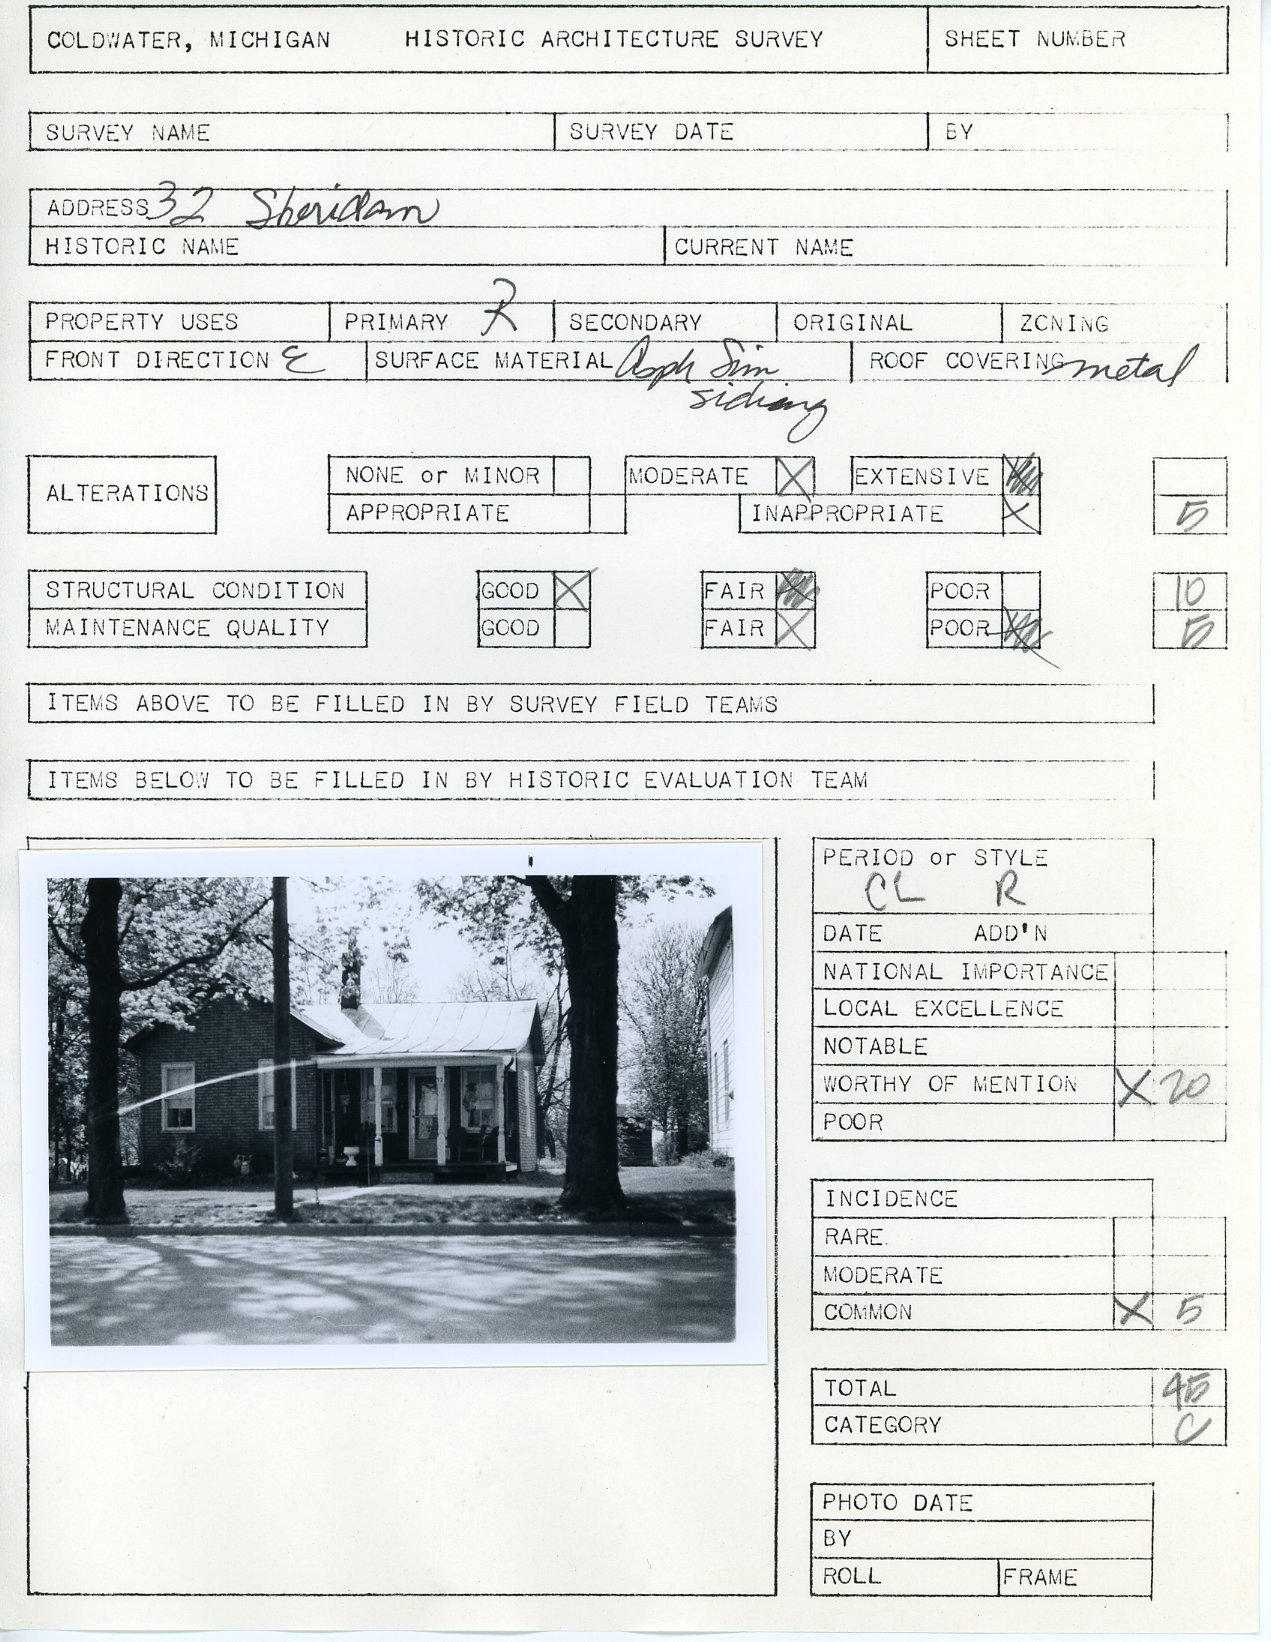 COLDWATER, MICHIGAN HISTORIC ARCHITECTURE SURVEY SHEET NUMBER
SURVEY NAME SURVEY DATE BY
ADDRESS 32 Sheridan
HISTORIC NAME CURRENT NAME
PROPERTY USES PRIMARY R SECONDARY ORIGINAL ZONING
FRONT DIRECTION E SURFACE MATERIAL Asph Sim siding ROOF COVERING metal
ALTERATIONS NONE or MINOR MODERATE X EXTENSIVE
APPROPRIATE INAPPROPRIATE X 5
STRUCTURAL CONDITION GOOD X FAIR POOR 10
MAINTENANCE QUALITY GOOD FAIR X POOR 5
ITEMS ABOVE TO BE FILLED IN BY SURVEY FIELD TEAMS
ITEMS BELOW TO BE FILLED IN BY HISTORIC EVALUATION TEAM
PERIOD or STYLE
CL R
DATE ADD'N
NATIONAL IMPORTANCE
LOCAL EXCELLENCE
NOTABLE
WORTHY OF MENTION X 20
POOR
INCIDENCE
RARE.
MODERATE
COMMON X 5
TOTAL 45
CATEGORY C
PHOTO DATE
BY
ROLL FRAME